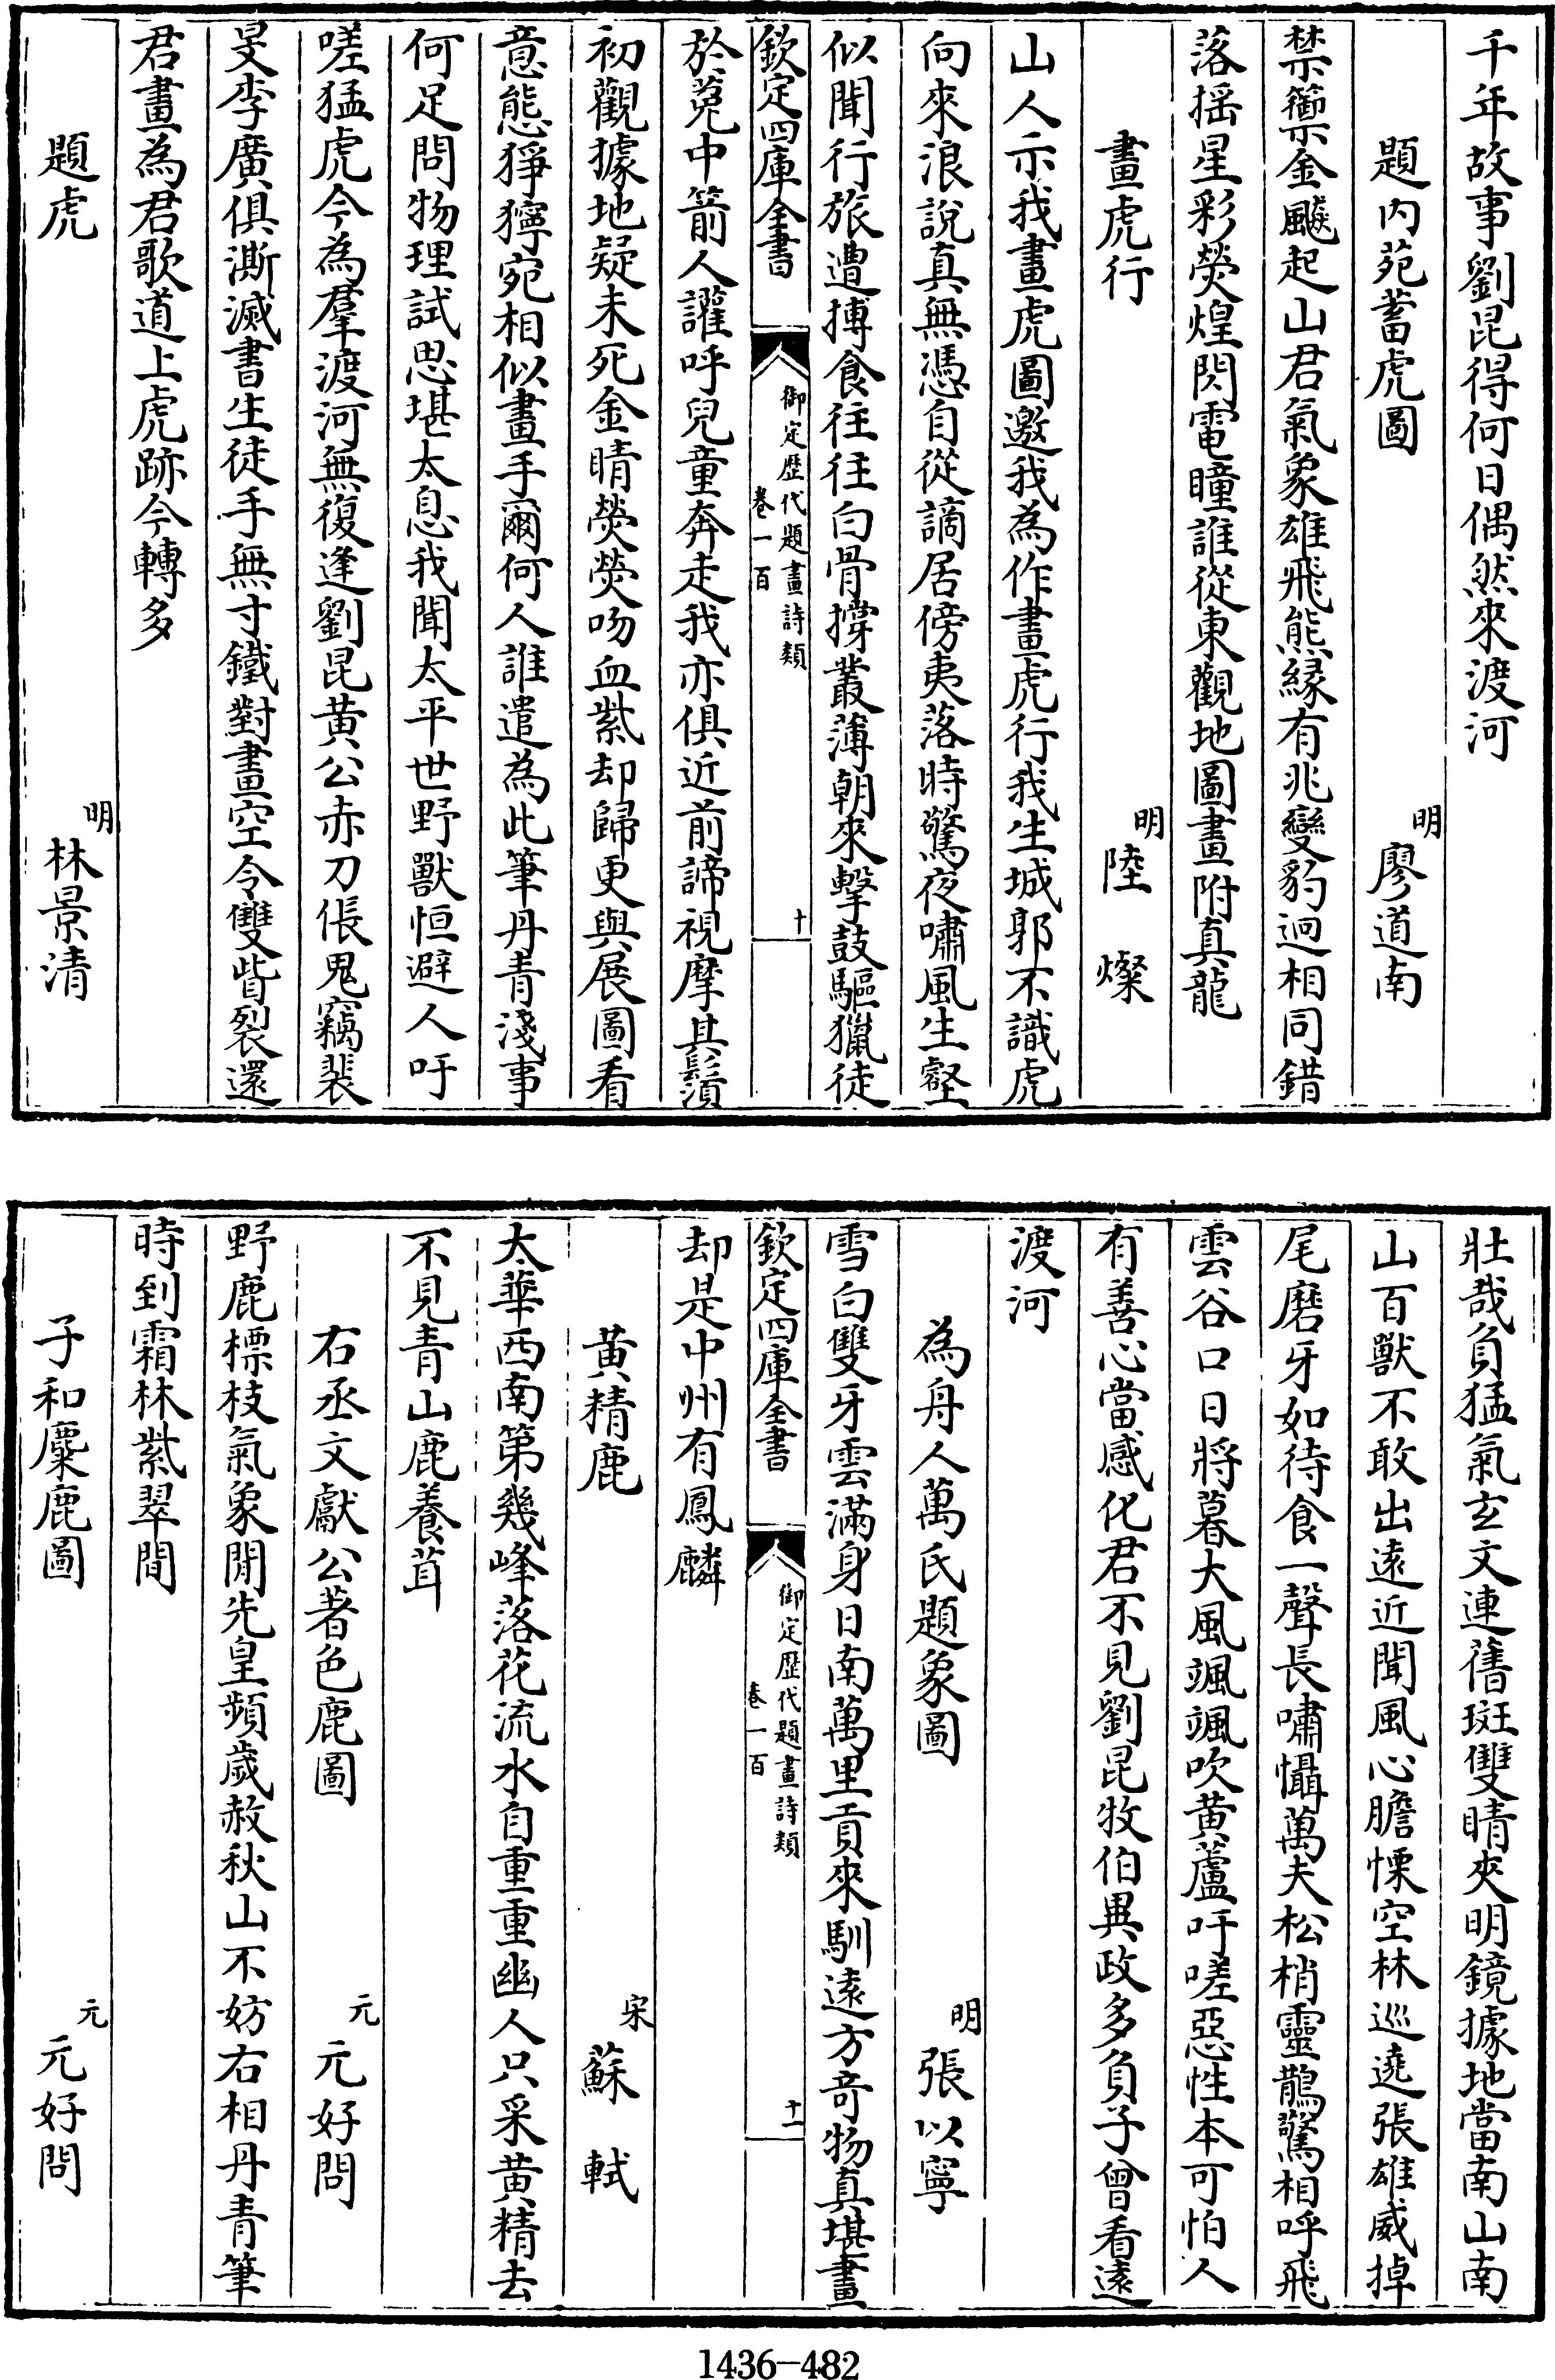 千年故事劉昆得何日偶然來渡河
題内苑蓄虎圖
明
廖道南
禁籞金飈起山君氣象雄飛熊縁有兆變豹迥相同錯
落揺星彩熒煌閃電瞳誰從東觀地圖畫附真龍
畫虎行
明
陸燦
山人示我畫虎圖邀我為作畫虎行我生城郭不識虎
向來浪說真無憑自從謫居傍夷落時驚夜嘯風生壑
似聞行旅遭搏食往往白骨撐叢薄朝來擊鼓驅獵徒
欽定四庫全書
御定歴代題畫詩類
卷一百
十
於菟中箭人讙呼兒童奔走我亦俱近前諦視摩其鬚
初觀據地疑未死金睛熒熒吻血紫却歸更與展圖看
意態猙獰宛相似畫手爾何人誰遣為此筆丹青淺事
何足問物理試思堪太息我聞太平世野獸恒避人吁
嗟猛虎今為羣渡河無復逢劉昆黄公赤刀倀鬼竊裴
旻李廣俱澌滅書生徒手無寸鐵對畫空令雙眥裂還
君畫為君歌道上虎跡今轉多
題虎
明
林景清
壯哉負猛氣玄文連舊斑雙睛夾明鏡據地當南山南
山百獸不敢出遠近聞風心膽慄空林巡遶張雄威掉
尾磨牙如待食一聲長嘯懾萬夫松梢靈鵲驚相呼飛
雲谷口日將暮大風颯颯吹黄蘆吁嗟惡性本可怕人
有善心當感化君不見劉昆牧伯異政多負子曾看遠
渡河
為舟人萬氏題象圖
明
張以寧
雪白雙牙雲滿身日南萬里貢來馴遠方竒物真堪畫
欽定四庫全書
御定歴代題畫詩類
卷一百
十一
却是中州有鳳麟
黄精鹿
宋
蘇軾
太華西南第幾峰落花流水自重重幽人只采黄精去
不見青山鹿養茸
右丞文獻公著色鹿圖
元
元好問
野鹿標枝氣象閒先皇頻歲赦秋山不妨右相丹青筆
時到霜林紫翠間
子和麋鹿圖
元
元好問
1436-482